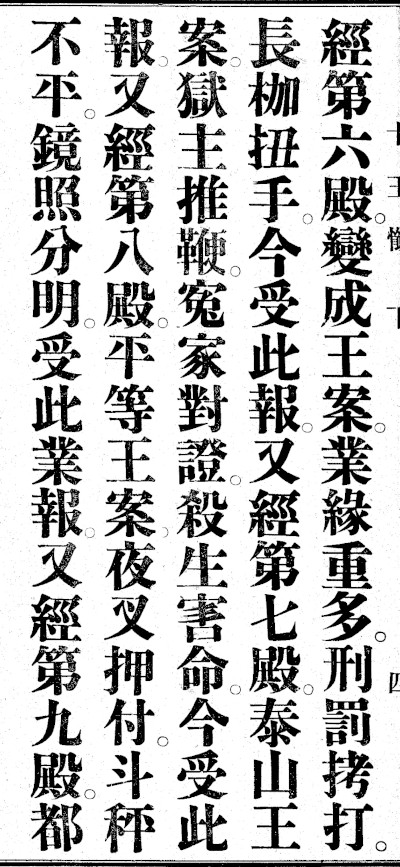 十王懺 下 四
經第六殿。變成王案。業緣重多。刑罰拷打。
長枷扭手。今受此報。又經第七殿。泰山王
案。獄主推鞭。寃家對證。殺生害命。今受此
報。又經第八殿。平等王案。夜叉押付。斗秤
不平。鏡照分明。受此業報。又經第九殿。都